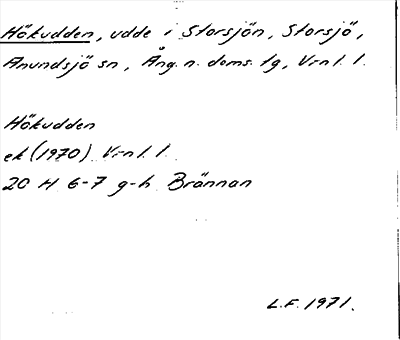 Hökudden, udde i Storsjön, Storsjö,
Anundsjö sn, Ång. n. doms. tg, Vrnl. l.
Hökudden
ek (1970) Vrnl. l.
20 H 6-7 g-h Brännan
L.F. 1971.